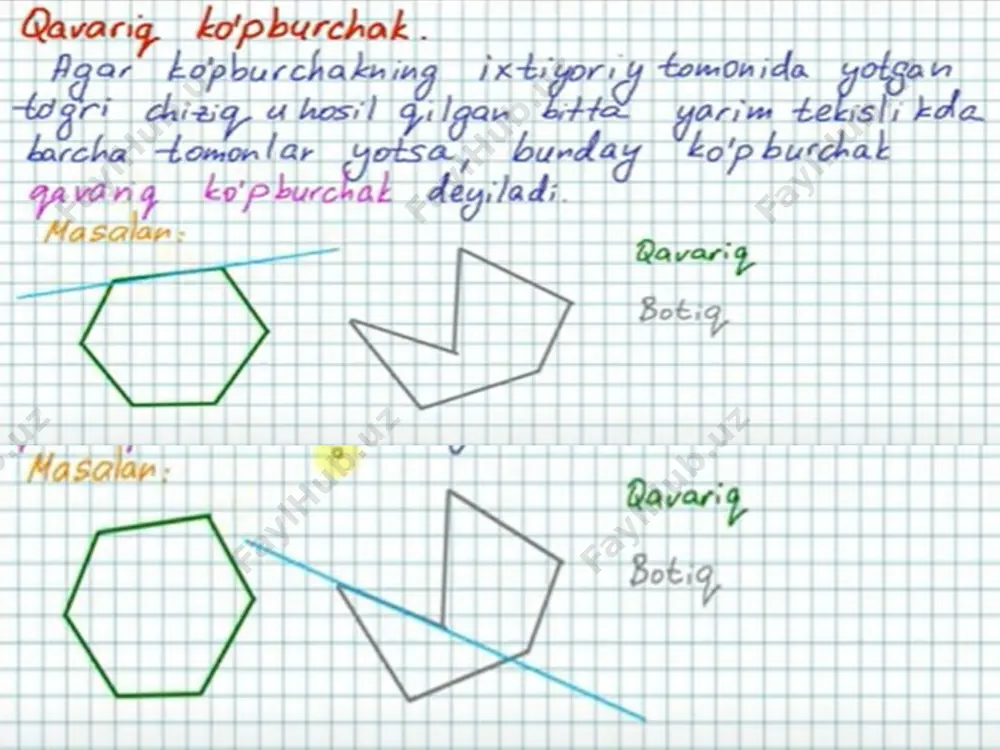 Qavariq ko'pburchak.
Agar ko'pburchakning ixtiyoriy tomonida yotgan
to'gri chiziq u hosil qilgan bitta yarim tekislikda
barcha tomonlar yotsa, bunday ko'pburchak
qavariq ko'pburchak deyiladi.
Masalan:
Qavariq
Botiq
Masalan:
Qavariq
Botiq
FaylHub.uz
FaylHub.uz
FaylHub.uz
FaylHub.uz
FaylHub.uz